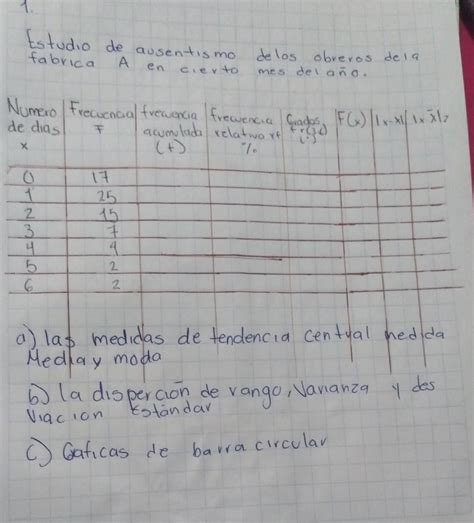 1.
Estudio de ausentismo de los obreros de la
fabrica A en cierto mes del año.
Numero Frecuencia frecuencia frecuencia Grados F(x) |x-x| |x-x̄|2
de dias F acumulada relativa rf
x (f) %
0 17
1 25
2 15
3 7
4 4
5 2
6 2
a) las medidas de tendencia central medida
Media y moda
b) la disperción de rango, Varianza y des
viacion Estándar
c) Gaficas de barra circular